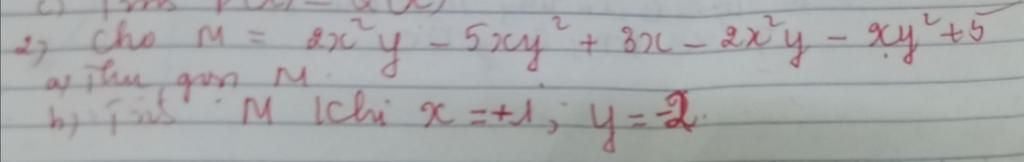 2) Cho M = 2x²y - 5xy² + 3x - 2x²y - xy² + 5
a) Thu gọn M.
b) Tính M khi x = +1; y = -2.